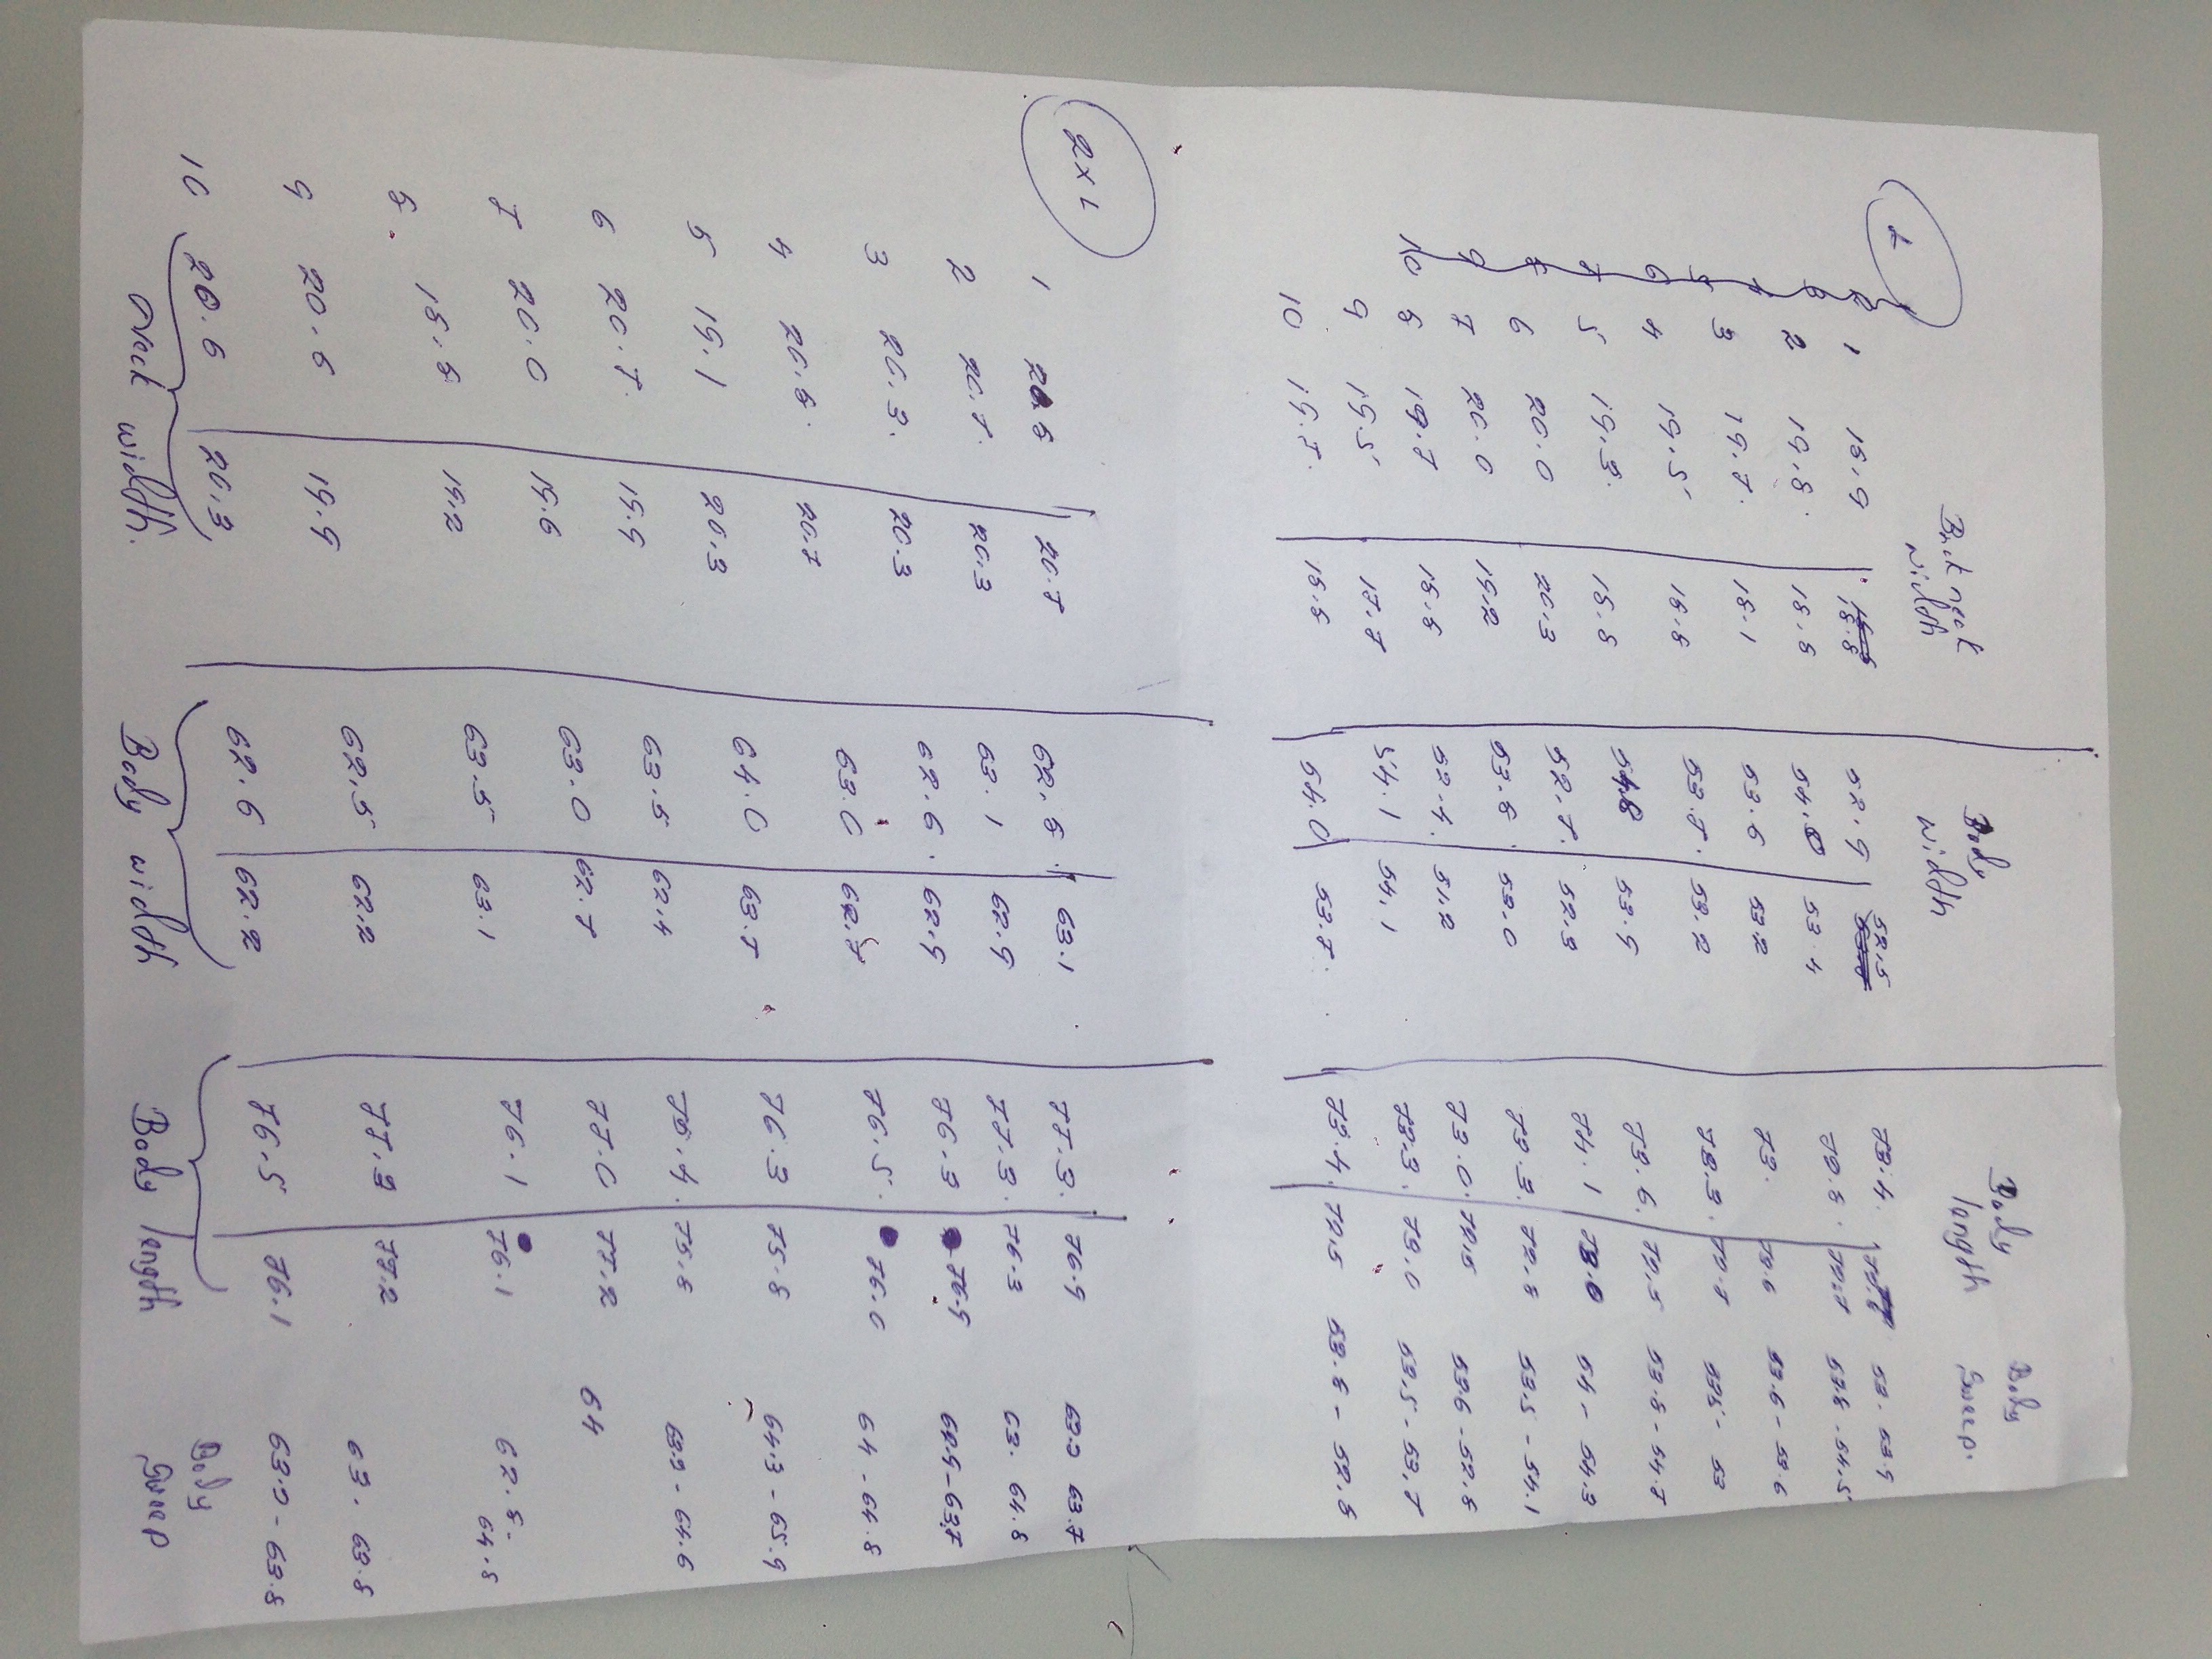 L
Back neck width
Body width
Body length
Body Sweep.
1 18.9 18.8 52.9 52.5 73.4 53. 53.9
2 19.8 18.8 54.0 53.4 72.8 72.7 53.8 - 54.5
3 19.7 18.1 53.6 53.2 73. 73.6 53.6 - 53.6
4 19.5 18.8 53.7 53.2 73.3 72.7 535 - 53
5 19.3 18.8 54.8 53.9 73.6 72.5 53.8 - 54.7
6 20.0 20.3 52.7 52.3 74.1 73.0 54 - 54.3
7 20.0 19.2 53.8 53.0 73.3 72.8 53.5 - 54.1
8 19.7 18.8 52.4 51.2 73.0 72.5 53.6 - 52.8
9 19.5 17.7 54.1 54.1 73.3 73.0 53.5 - 53.7
10 19.7 18.8 54.0 53.7 73.4 72.5 53.8 - 52.8
2XL
1 20.8 20.7 62.8 63.1 77.3 76.9 63.7
2 20.7 20.3 63.1 62.9 77.3 76.3 63. 64.8
3 20.3 20.3 62.6 62.9 76.3 76.9 62.9 - 63.7
4 20.8 20.7 63.0 62.7 76.5 76.0 64 - 64.8
5 19.1 20.3 64.0 63.7 76.3 75.8 64.3 - 65.9
6 20.7 19.9 63.5 62.4 75.4 75.8 - 64.6
7 20.0 19.6 63.0 62.7 77.0 77.2 64
8 18.8 19.2 63.5 63.1 76.1 76.1 62.8 - 64.8
9 20.6 19.9 62.5 62.2 77.3 77.2 63. 63.8
10 20.6 20.3 62.6 62.2 76.5 76.1 - 63.8
Neck width.
Body width
Body length
Body Sweep